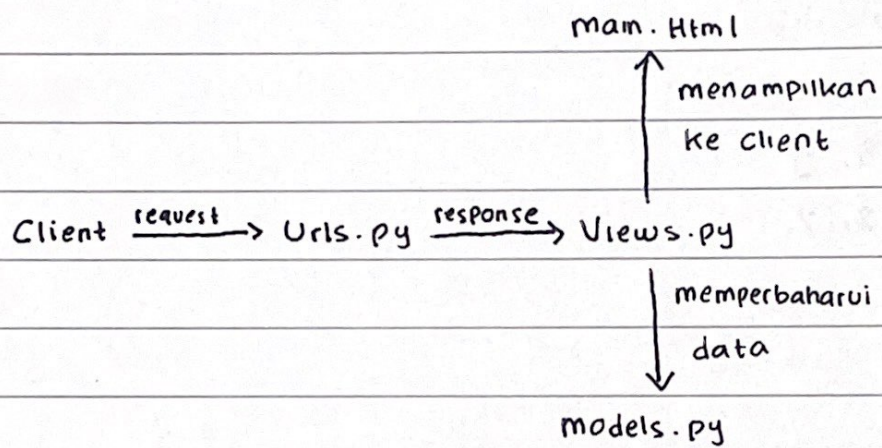 main.Html
menampilkan
ke client
Client request Urls.py response Views.py
memperbaharui
data
models.py